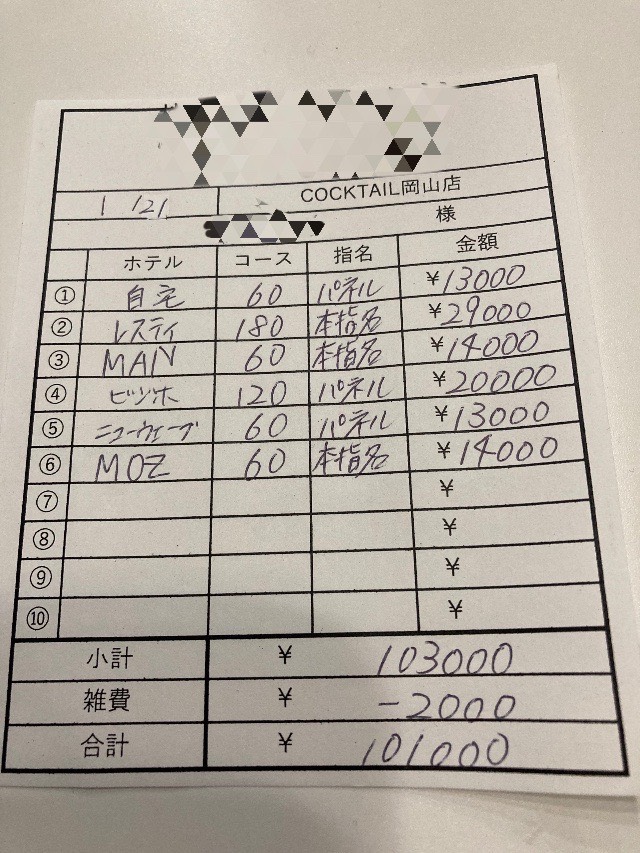 COCKTAIL岡山店
1/21
様
ホテル コース 指名 金額
① 自宅 60 パネル ¥13000
② レスティ 180 本指名 ¥29000
③ MAN 60 本指名 ¥14000
④ ビジホ 120 パネル ¥20000
⑤ ニューウェーブ 60 パネル ¥13000
⑥ MOZ 60 本指名 ¥14000
⑦ ¥
⑧ ¥
⑨ ¥
⑩ ¥
小計 ¥ 103000
雑費 ¥ -2000
合計 ¥ 101000